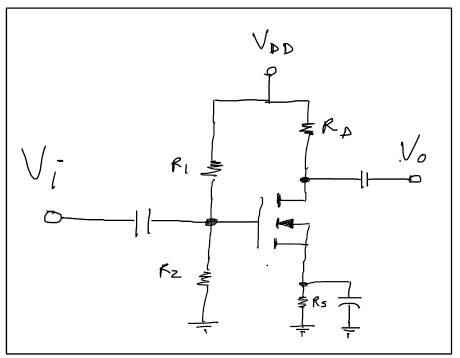 VDD
RD
R1
Vo
Vi
R2
Rs